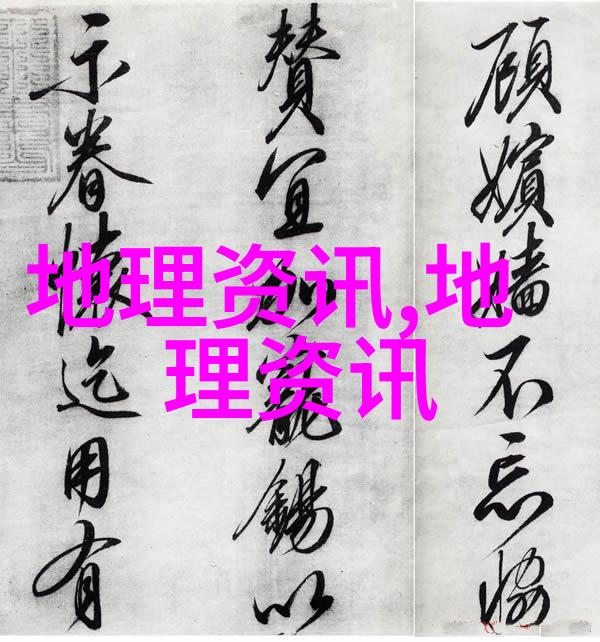 顧嬪嬙不忘恊
贊宜加寵錫以
示眷懷迄用有
地理资讯,地
理资讯